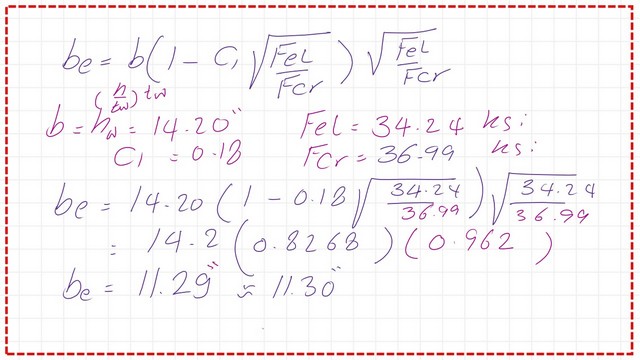 be = b(1 - C₁ √(Fel/Fcr)) √(Fel/Fcr)
(h/tw) tw
b = hw = 14.20" Fel = 34.24 ksi
C₁ = 0.18 Fcr = 36.99 ksi
be = 14.20 (1 - 0.18 √(34.24/36.99)) √(34.24/36.99)
= 14.2 (0.8268) (0.962)
be = 11.29" ≈ 11.30"